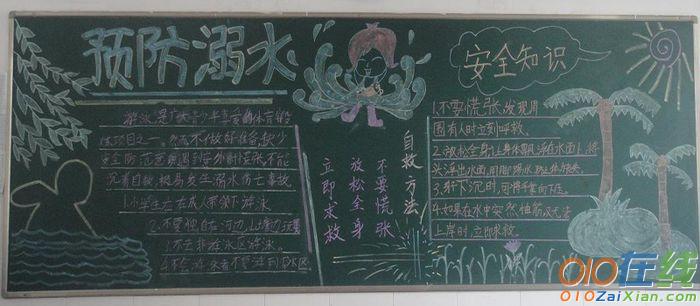 预防溺水
游泳是广大青少年喜爱的体育锻
炼项目之一。然而不做好准备,缺少
安全防范意识,遇到意外时慌张,不能
沉着自救,极易发生溺水伤亡事故。
1.小学生应在成人带领下游泳
2.不要独自在河边、山塘边玩耍
3.不去非游泳区游泳。
4.不会游泳者不要游到深水区
自救方法
不要慌张
放松全身
立即求救
安全知识
1.不要慌张,发现周
围有人时立刻呼救。
2.放松全身,让身体漂浮在水面上,将
头浮出水面,用脚踢水
3.身体下沉时,可将手掌向下压。
4.如果在水中突然抽筋,又无法
上岸时,立即求救。
010在线
010ZaiXian.com